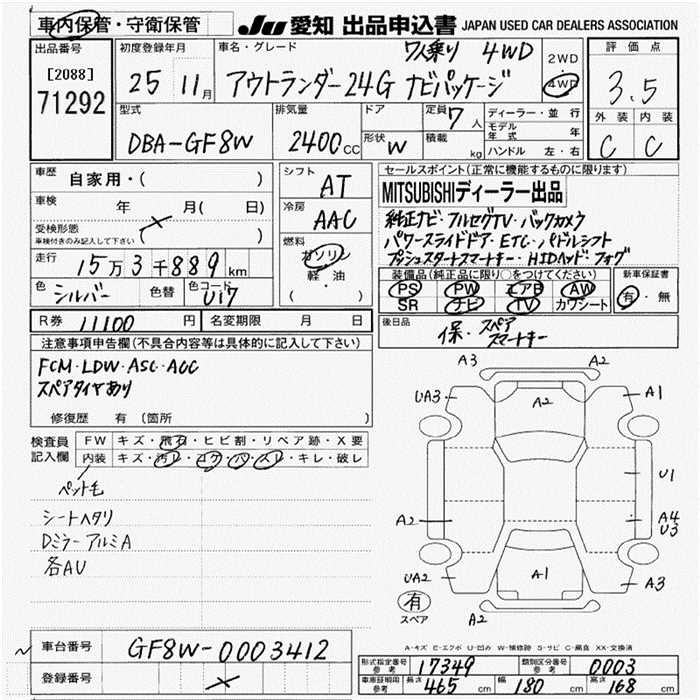 車内保管・守衛保管 JU 愛知 出品申込書 JAPAN USED CAR DEALERS ASSOCIATION
出品番号 [2088] 71292
初度登録年月 25 11月
車名・グレード 7人乗り 4WD
アウトランダー24G ナビパッケージ
2WD 4WD
評価点 3.5
外装 内装
C C
型式 DBA-GF8W
排気量 2400cc
ドア 形状 W
定員 7人
積載 kg
ディーラー・並行
モデル年式 年
ハンドル 左・右
車歴 自家用・( )
車検 年 月( 日)
受検形態 車検付きのみ記入して下さい ( )
走行 15万3千889km
色 シルバー 色替 色コード U17
シフト AT
冷房 AAC
燃料 ガソリン
(軽・油)
セールスポイント(正常に機能するものに限ります)
MITSUBISHIディーラー出品
純正ナビ・フルセグTV・バックカメラ
パワースライドドア・ETC・パドルシフト
プッシュスタートスマートキー・HIDヘッド・フォグ
装備品(純正品に限り○をつけてください) 新車保証書
PS PW エアB AW 有・無
SR ナビ TV カワシート
R券 11100円 名変期限 月 日
後日品 保・スペア
スマートキー
注意事項申告欄(不具合内容等は具体的に記入して下さい)
FCM・LDW・ASC・ACC
スペアタイヤあり
修復歴 有(箇所 )
検査員記入欄 FW キズ・飛石・ヒビ割・リペア跡・X要
内装 キズ・汚レ・コゲ・穴・スレ・キレ・破レ
ペット毛
シートヘタリ
DミラーアルミA
各AU
A3 A2
UA3 A2 A1
U1
A2 A4
U3
UA2 A1 A3
有 スペア A2
A-キズ E-エクボ U-凹み W-補修跡 S-サビ C-腐食 XX-交換済
車台番号 GF8W-0003412
登録番号
形式指定番号 参考 17349 類別区分番号 参考 0003
車庫証明用 参考 長さ 465cm 幅 180cm 高さ 168cm